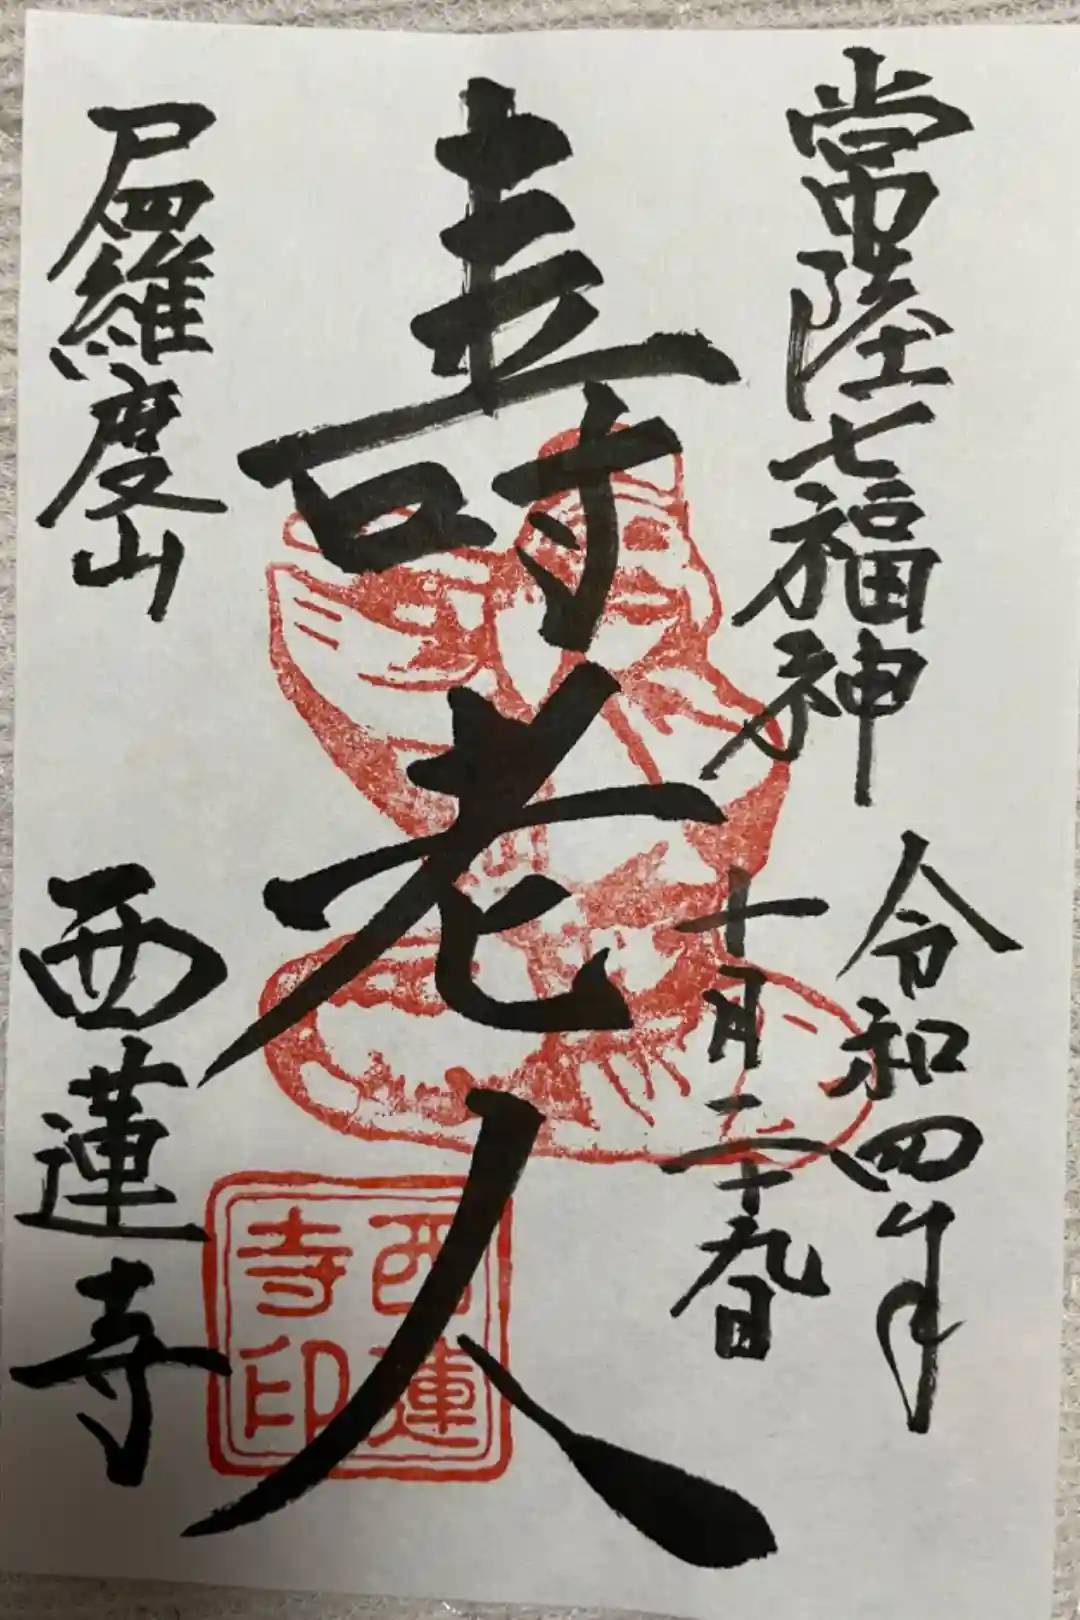 常陸七福神
令和四年
十月二十九日
壽老人
尸羅度山
西蓮寺
西蓮
寺印